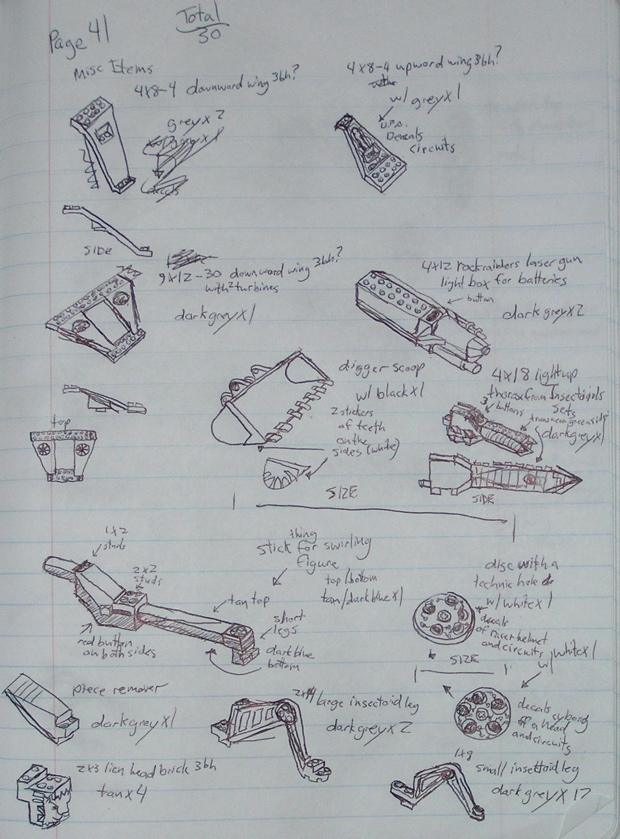 Page 41
Total
30
Misc Items
4x8-4 downward wing 3bh?
grey x 2
4x8-4 upward wing 3bh?
w/ grey x 1
U.F.O.
Decals
circuits
SIDE
9x12-30 downward wing 3bh?
with 2 turbines
dark grey x 1
4x12 rockraiders laser gun
light box for batteries
button
dark grey x 2
top
digger scoop
w/ black x 1
2 stickers
of teeth
on the
sides (white)
4x18 light up
thorax from Insectoids
sets
3 buttons
trans neon green side
dark grey x 1
SIDE
SIZE
1x2
studs
2x2
studs
thing
stick for swirling
figure
top/bottom
tan/dark blue x 1
tan top
short
legs
dark blue
bottom
red button
on both sides
disc with a
technic hole
w/ white x 1
decals
of racer helmet
and circuits
SIZE
w/ white x 1
decals
of a cyborg
head
and circuits
piece remover
dark grey x 1
large insectoid leg
dark grey x 2
2x3 lion head brick 3bh
tan x 4
1x8
small insectoid leg
dark grey x 17